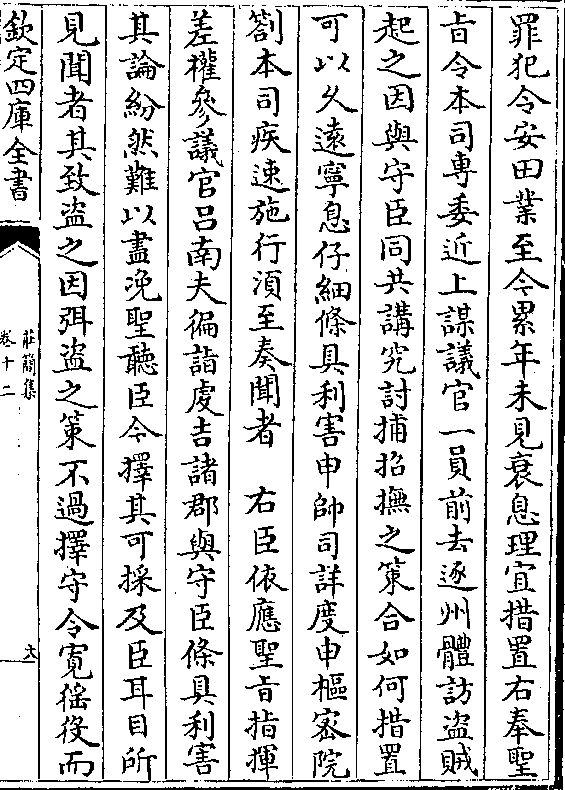 罪犯令安田業至今累年未見衰息理宜措置右奉聖
旨令本司專委近上謀議官一員前去逐州體訪盜賊
起之因與守臣同共講究討捕招撫之策合如何措置
可以久遠寧息仔細條具利害申帥司詳度申樞密院
劄本司疾速施行須至奏聞者　右臣依應聖旨指揮
差權參議官呂南夫徧詣虔吉諸郡與守臣條具利害
其論紛然難以盡凂聖聽臣今擇其可採及臣耳目所
見聞者其致盜之因弭盜之策不過擇守令寛徭役而
欽定四庫全書
莊簡集
卷十二